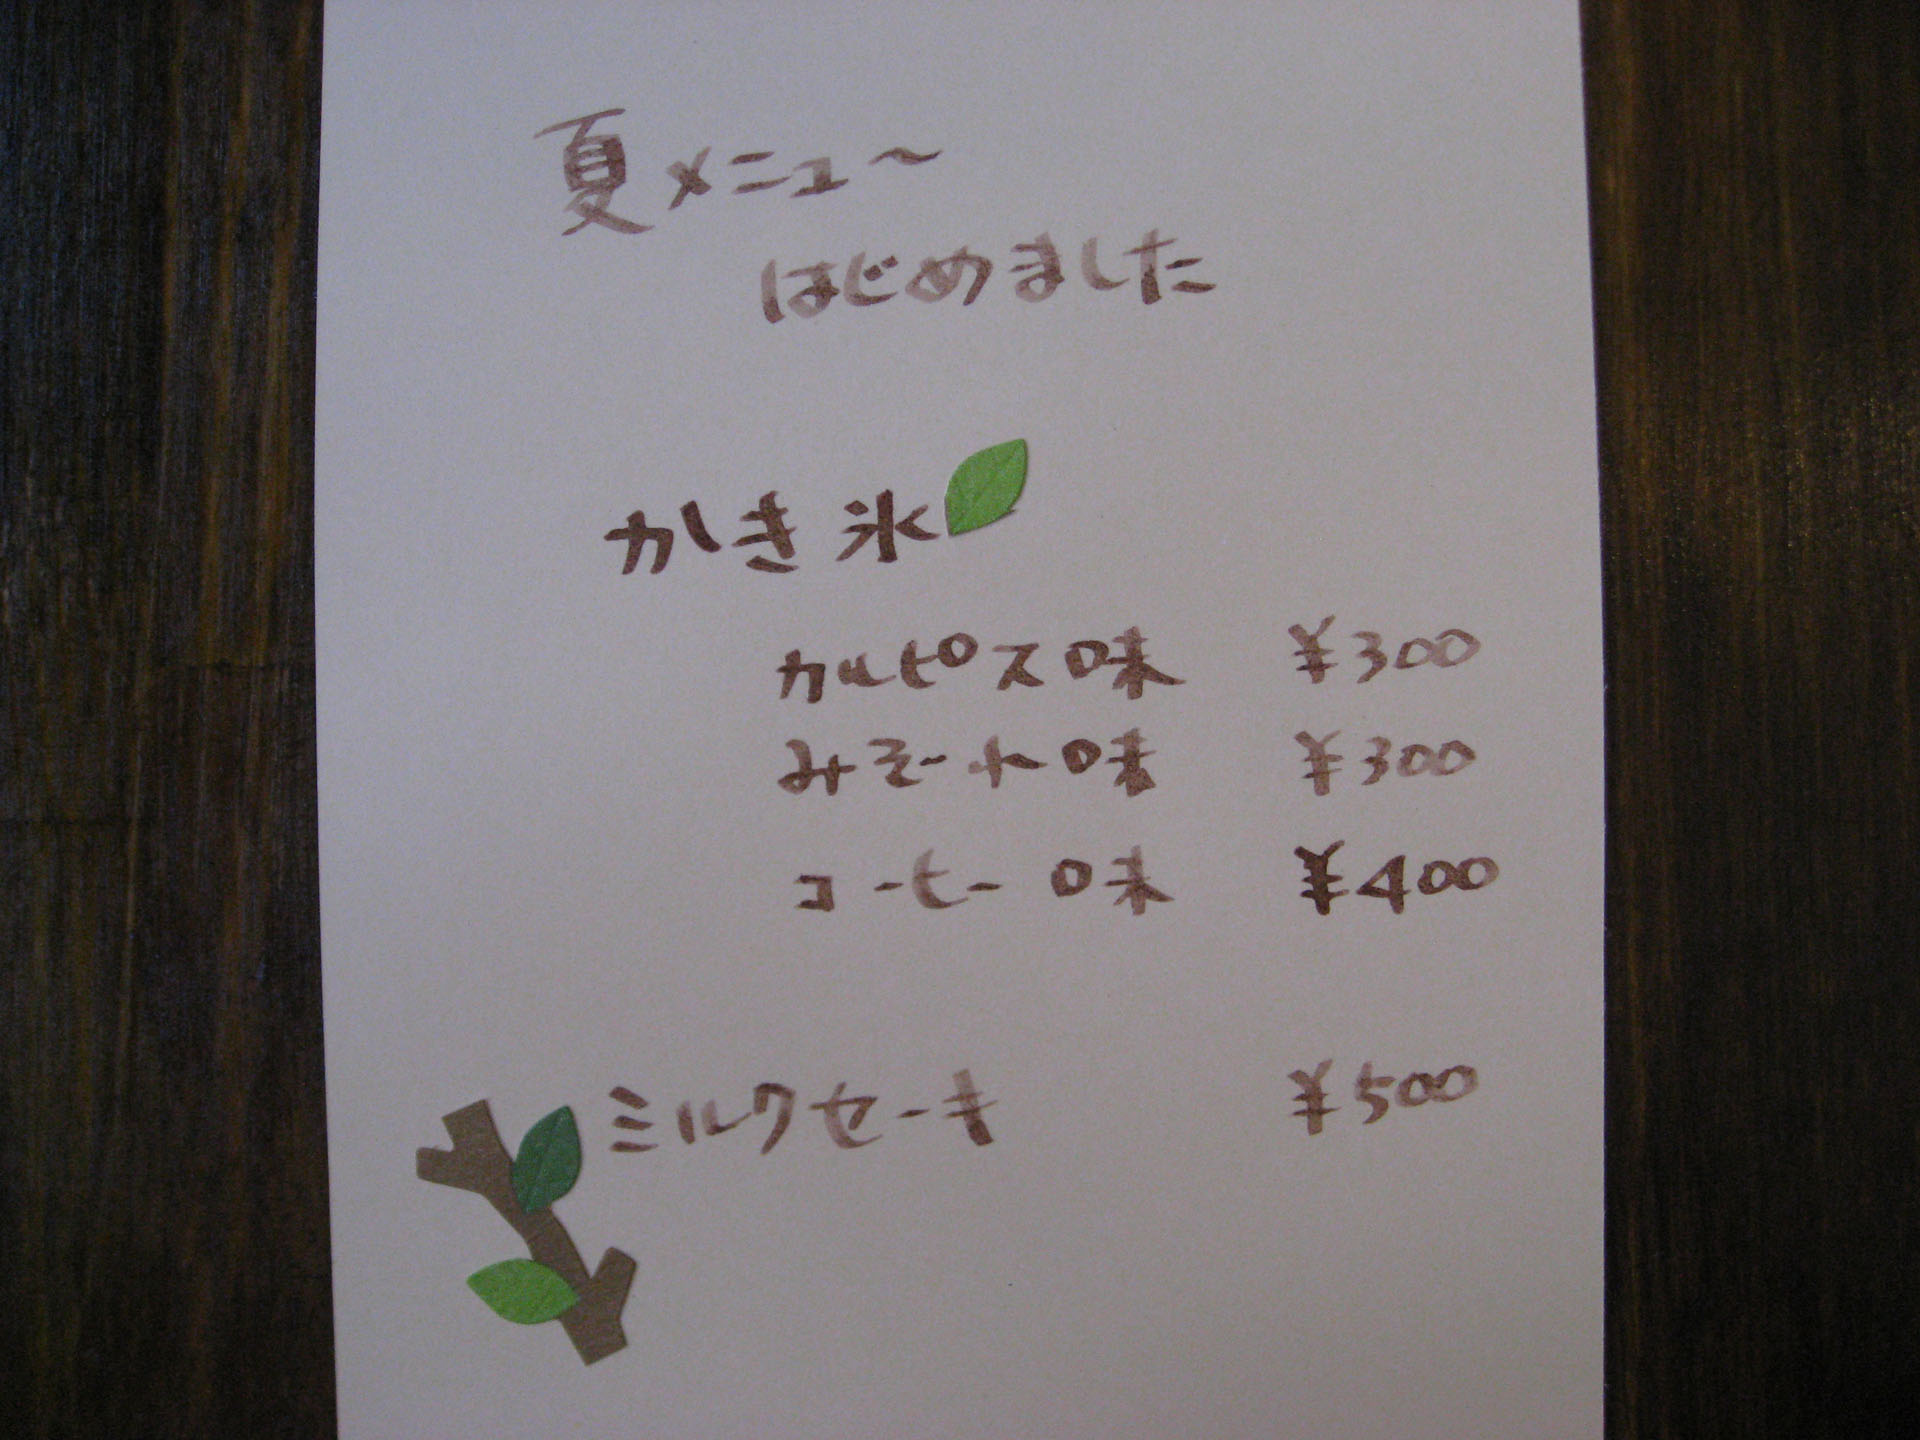 夏メニュー
はじめました
かき氷
カルピス味 ¥300
みぞーれ味 ¥300
コーヒー味 ¥400
ミルクセーキ ¥500